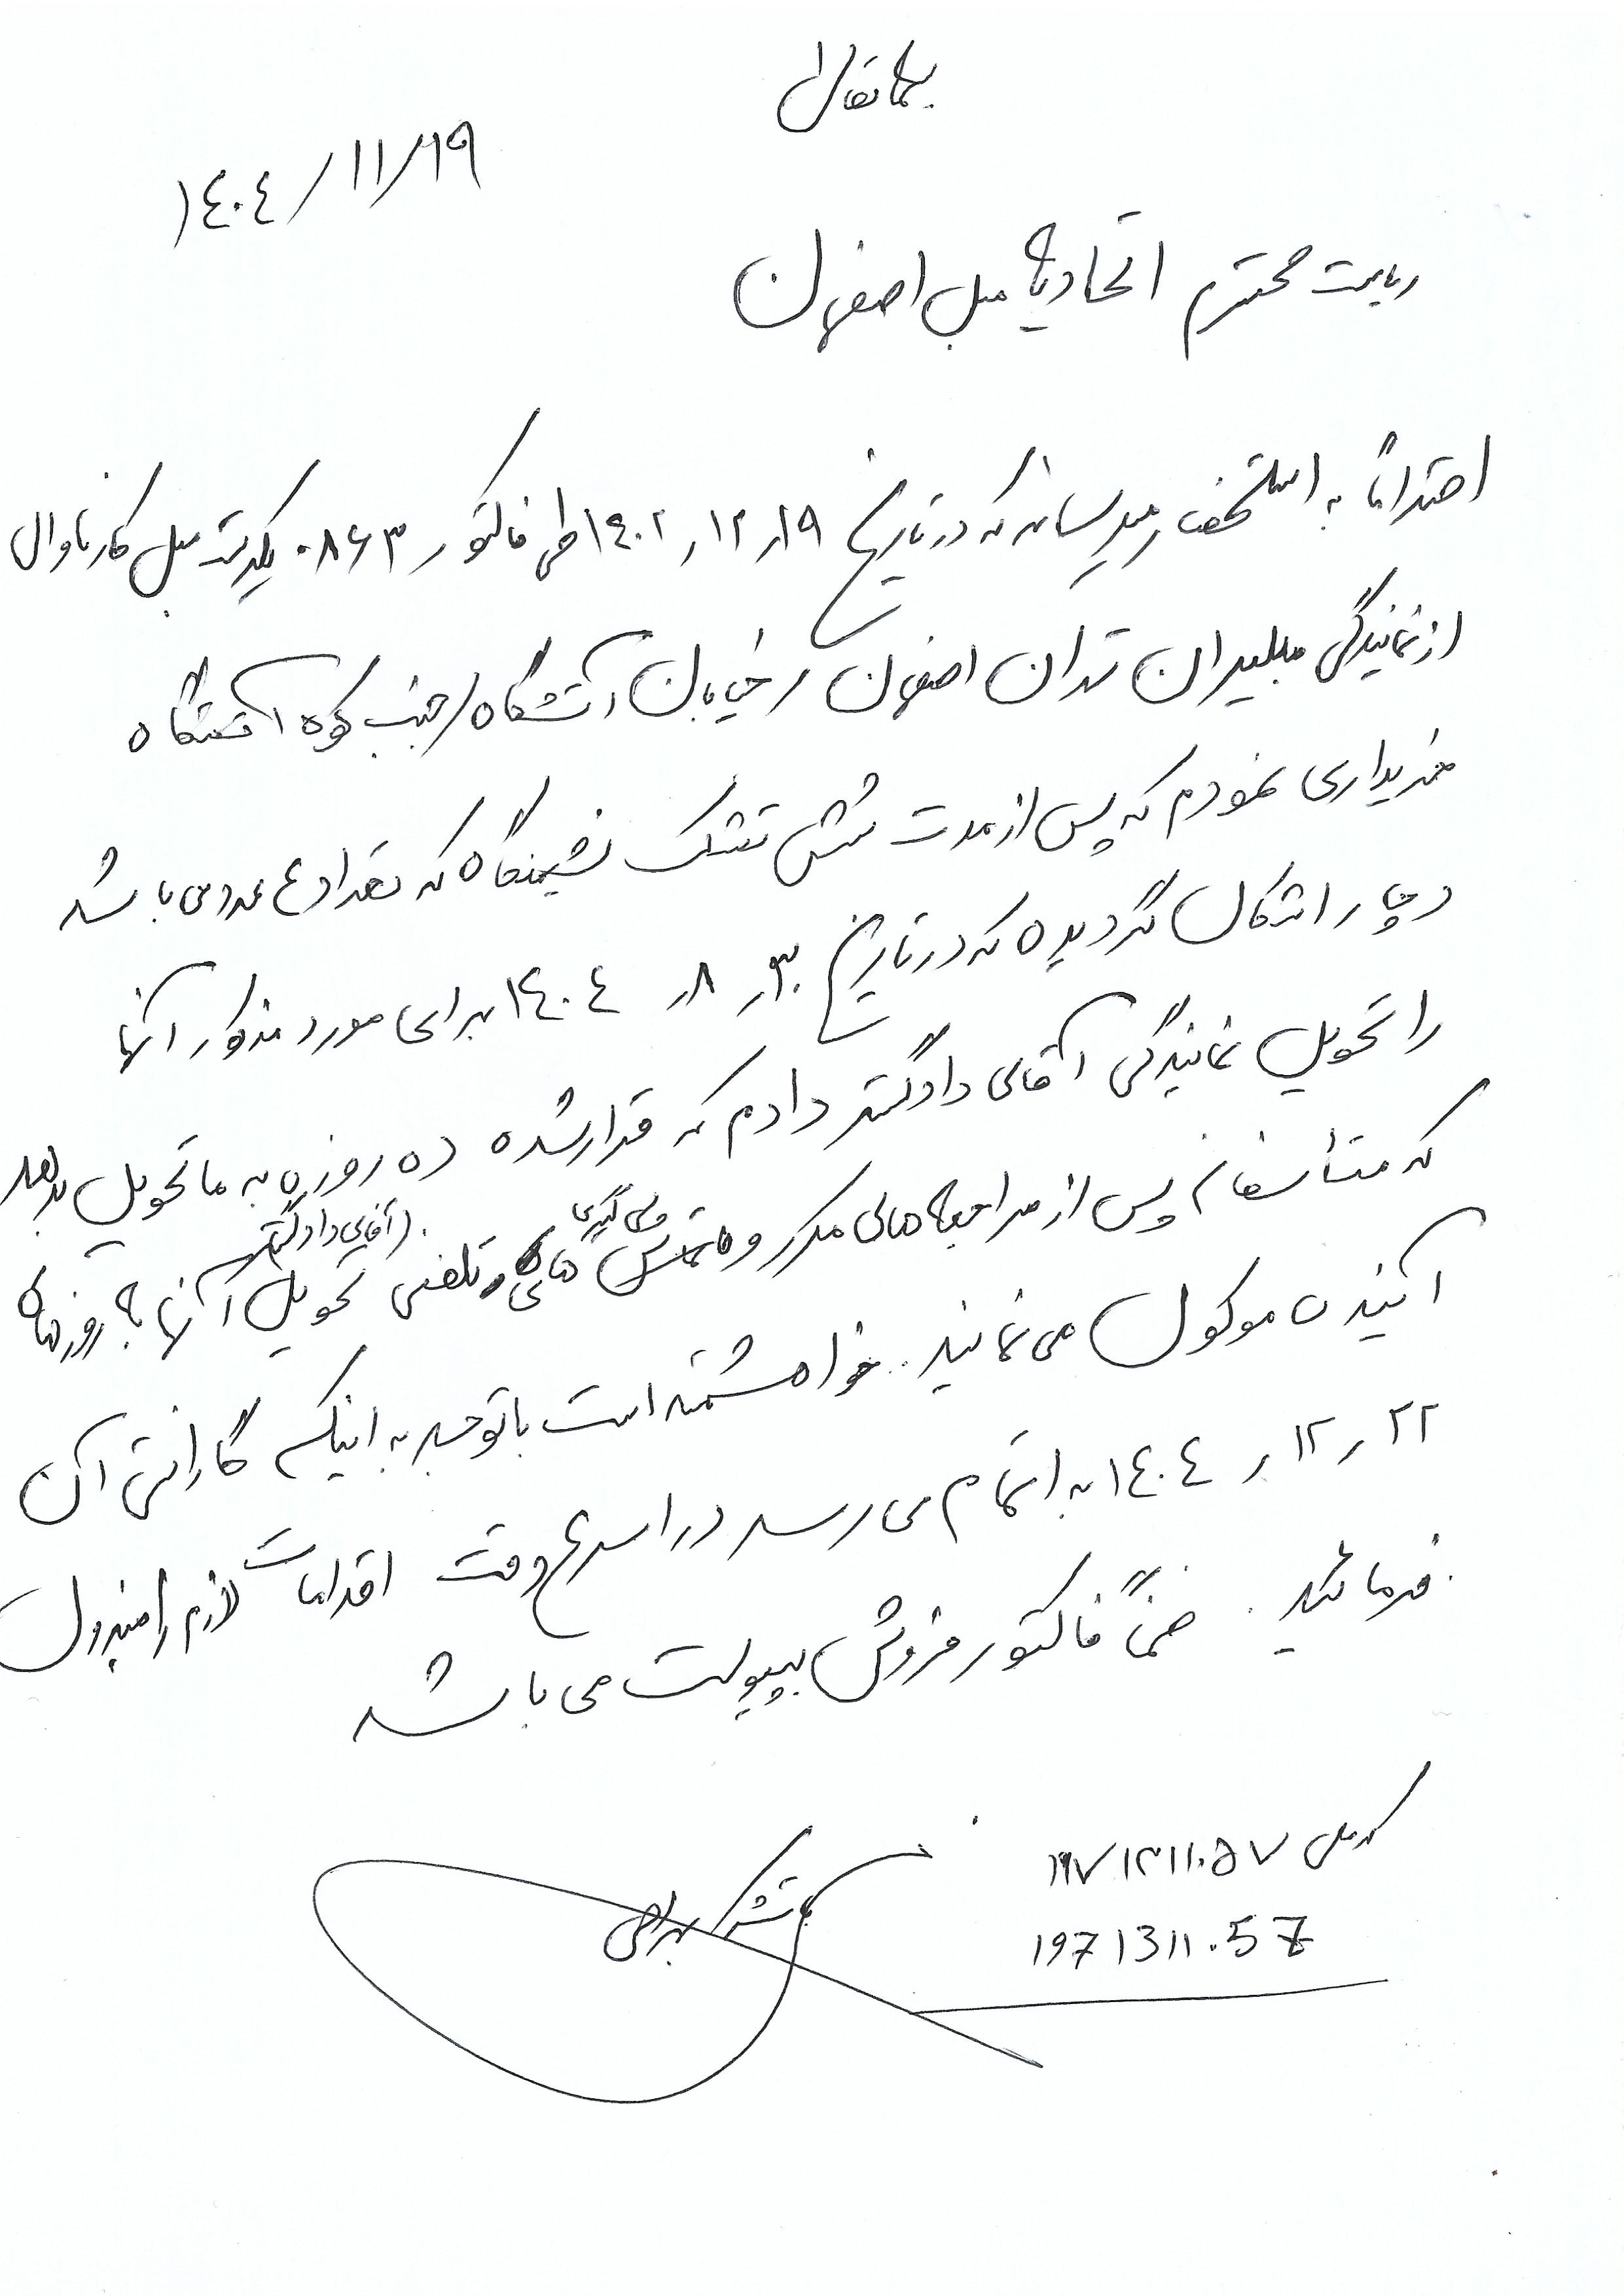 بسمه تعالی
۱۴۰۴/۱۱/۱۹
ریاست محترم اتحادیه مبل اصفهان
احتراماً به استحضار میرساند که در تاریخ ۱۹ر۱۲ر۱۴۰۲ طی فاکتور ۰۸۶۳ یکدست مبل کارناوال
از نمایندگی مبلیران تهران اصفهان ر خیابان آتشگاه ر جنب کوه آتشگاه
خریداری نمودم که پس از مدت شش تشک نشیمنگاه که تعداد ۶ عدد می باشد
دچار اشکال گردیده که در تاریخ ۳۰ر ۸ر ۱۴۰۴ برای مورد مذکور آنها
را تحویل نمایندگی آقای دادگستر دادم که قرار شده ده روزه به ما تحویل بدهد
که متأسفانه پس از مراجعه های مکرر و پی گیری های تلفنی تحویل آنها به روزهای (آقای دادگستر)
آینده موکول می نمایند. خواهشمند است با توجه به اینکه گارانتی آن
۲۲ر۱۲ر ۱۴۰۴ به اتمام می رسد در اسرع وقت اقدامات لازم را مبذول
فرمائید. ضمناً فاکتور فروش بپیوست می باشد
کدملی ۱۹۷۱۳۱۱۰۵۷
با تشکر
1971311057